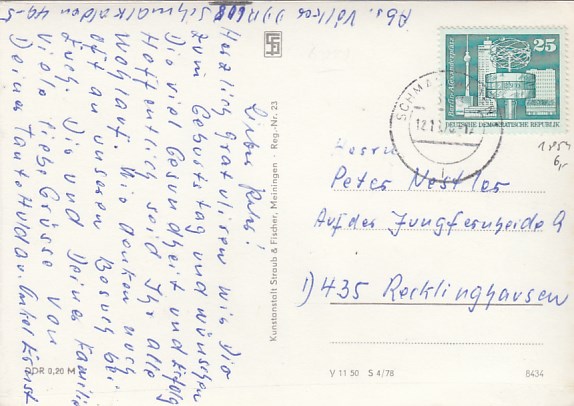 Abs. Völker
Schmalkalden
Lieber Peter!
Herzlich gratulieren wir Dir
zum Geburtstag und wünschen
Dir viel Gesundheit und Erfolg
Hoffentlich seid Ihr alle
Wohlauf. Wir denken noch
oft an unseren Besuch bei
Euch. Dir und Deiner Familie
viele liebe Grüsse von
Deiner Tante Hulda u. Onkel Ernst
DDR 0,20 M
Kunstanstalt Straub & Fischer, Meiningen · Reg.-Nr. 23
Berlin, Alexanderplatz
25
DEUTSCHE DEMOKRATISCHE REPUBLIK
SCHMA
Herrn
Peter Nestler
Auf der Jungfernheide 9
D 435 Recklinghausen
V 11 50 S 4/78
8434